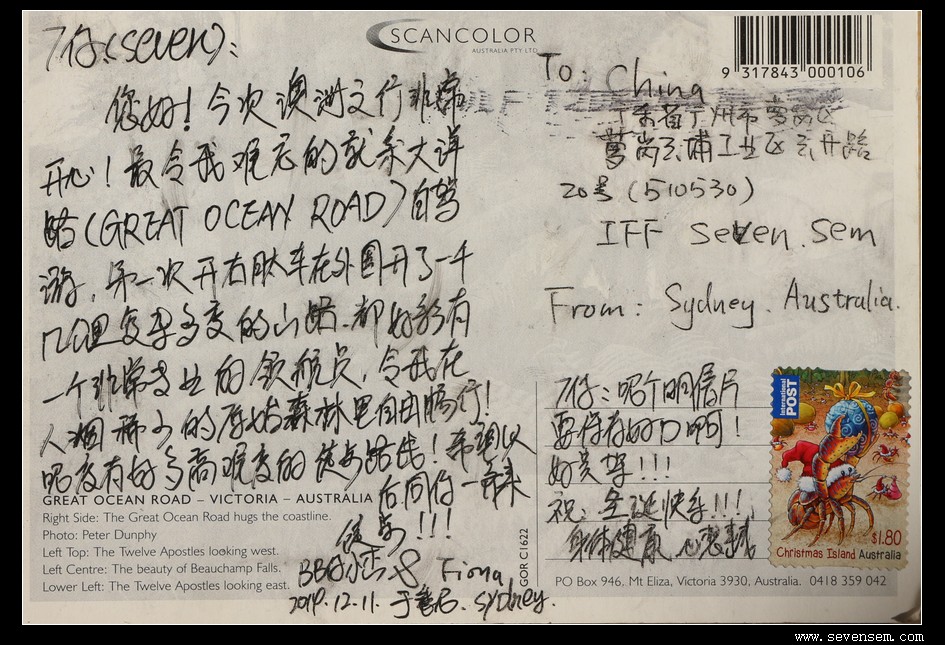 7仔(seven):
SCANCOLOR
AUSTRALIA PTY LTD
9 317843 000106
您好!今次澳洲之行非常
开心!最令我难忘的就系大洋
路(GREAT OCEAN ROAD)自驾
游,第一次开右肽车在外国开了一千
几公里复杂多变的山路,都好彩有
一个非常专业的领航员,令我在
人烟稀少的原始森林里自由畅行!
呢度有好多高难度的徒步路线!希望以
后同你一齐来
徒步!!!
BB
Fiona
2014.12.11.于
Sydney.
To: China
广东省广州市萝岗区
萝岗云埔工业区云开路
20号(510530)
IFF seven.sem
From: Sydney. Australia.
7仔:呢个明信片
要保存好D啊!
好贵架!!!
祝:圣诞快乐!!!
身体健康,心想事成
International
POST
$1.80
Christmas Island Australia
GREAT OCEAN ROAD – VICTORIA – AUSTRALIA
Right Side: The Great Ocean Road hugs the coastline.
Photo: Peter Dunphy
Left Top: The Twelve Apostles looking west.
Left Centre: The beauty of Beauchamp Falls.
Lower Left: The Twelve Apostles looking east.
GOR C1622
PO Box 946, Mt Eliza, Victoria 3930, Australia. 0418 359 042
www.sevensem.com